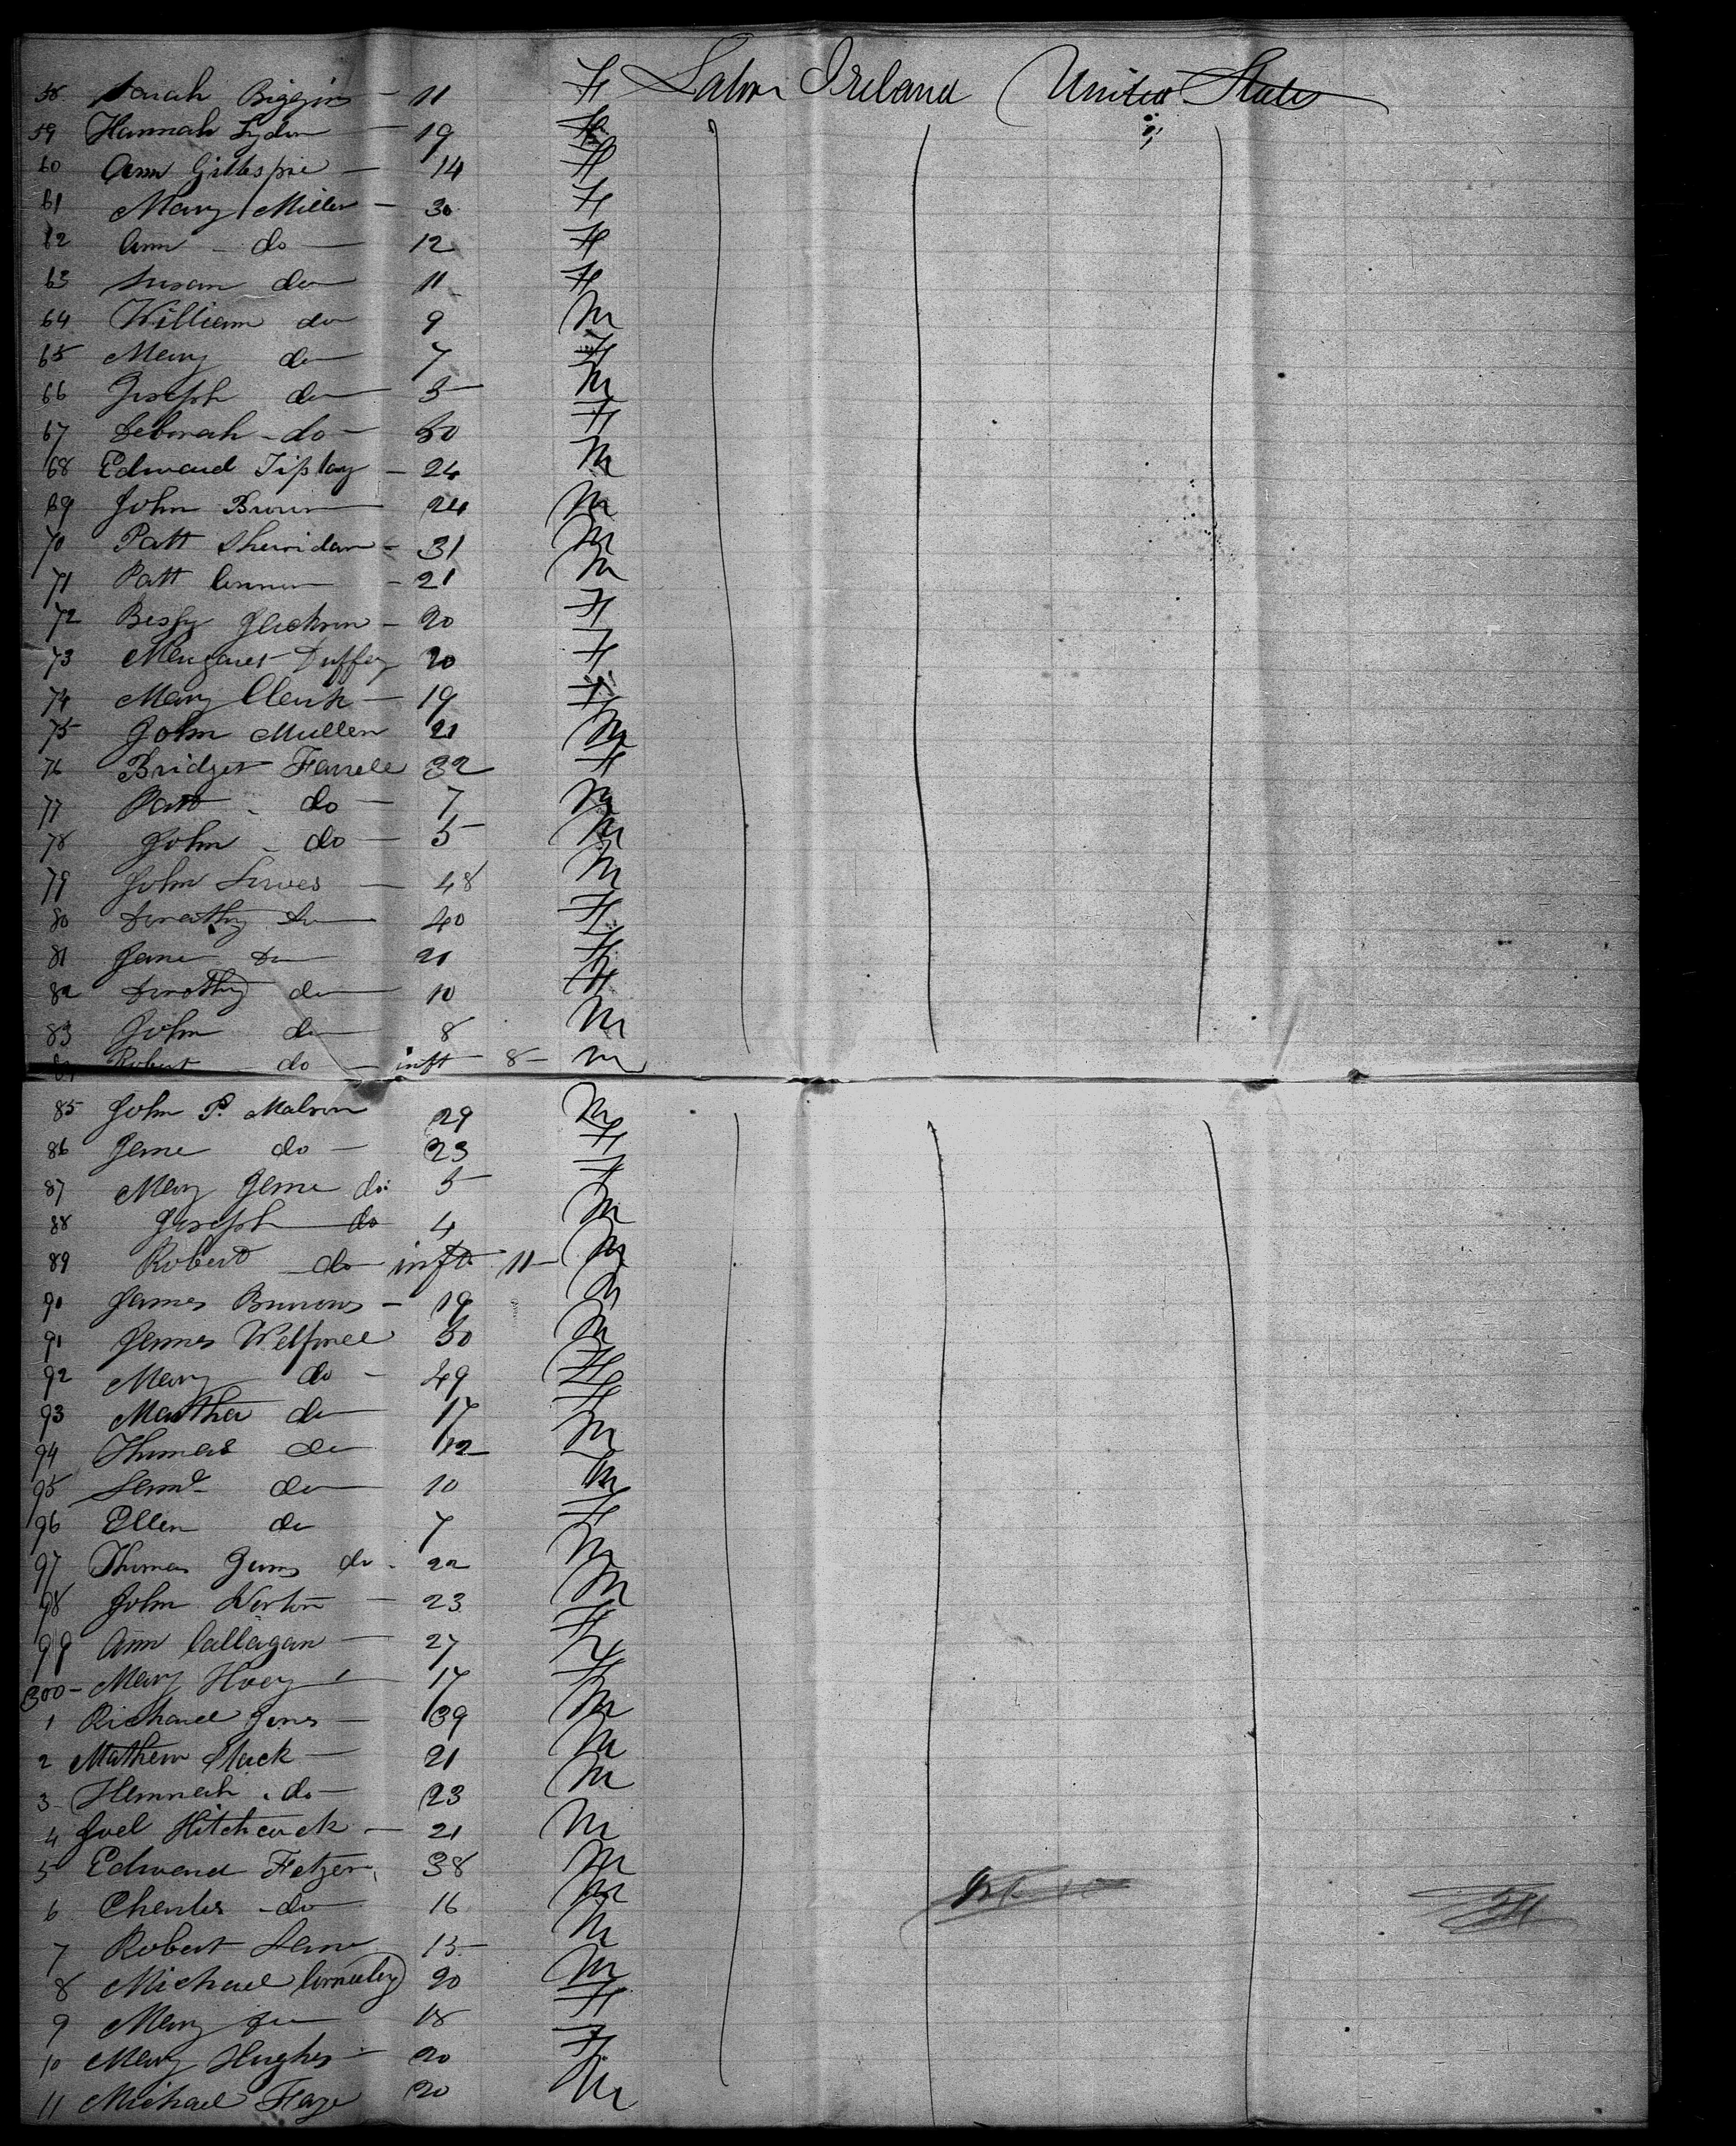 58 Sarah Biggins - 11 F Labor Ireland United States
59 Hannah Lyden 19 F
60 Ann Gillespie - 14 F
61 Mary Miller - 30 F
62 Ann - do - 12 F
63 Susan do 11 F
64 William do 9 M
65 Mary do 7 F
66 Joseph do 5 M
67 Deborah - do - 50 F
68 Edward Tiplay - 24 M
69 John Brown 24 M
70 Patt Sheridan - 31 M
71 Patt - 21 M
72 Bessy Jackson - 20 F
73 Margaret Duffey 20 F
74 Mary Clark - 19 F
75 John Mullen 21 M
76 Bridget Farrell 32 F
77 Patt - do - 7 M
78 John - do - 5 M
79 John - 48 M
80 Dorothy Do 40 F
81 Jane Do 21 F
82 Dorothy do 10 F
83 John do 8 M
84 Robert - do - inft - 8 - M
85 John P. Malvin 29 M
86 Jane do - 23 F
87 Mary Jane do 5 F
88 Joseph do 4 M
89 Robert - do inft 11 - M
90 James Burrows - 19 M
91 James 50 M
92 Mary do - 49 F
93 Martha do 17 F
94 Thomas do 12 M
95 Saml do 10 M
96 Ellen do 7 F
97 Thomas do - 22 M
98 John Norton - 23 M
99 Ann Callagan - 27 F
300 - Mary Hoey - 17 F
1 Richard Jones - 39 M
2 Mathew Slack - 21 M
3 Hannah - do - 23 M
4 Joel Hitchcock - 21 M
5 Edward Fetzer 38 M
6 Charles - do 16 M
7 Robert 15 M
8 Michael 20 M
9 Mary 18 F
10 Mary Hughes - 20 F
11 Michael 20 M